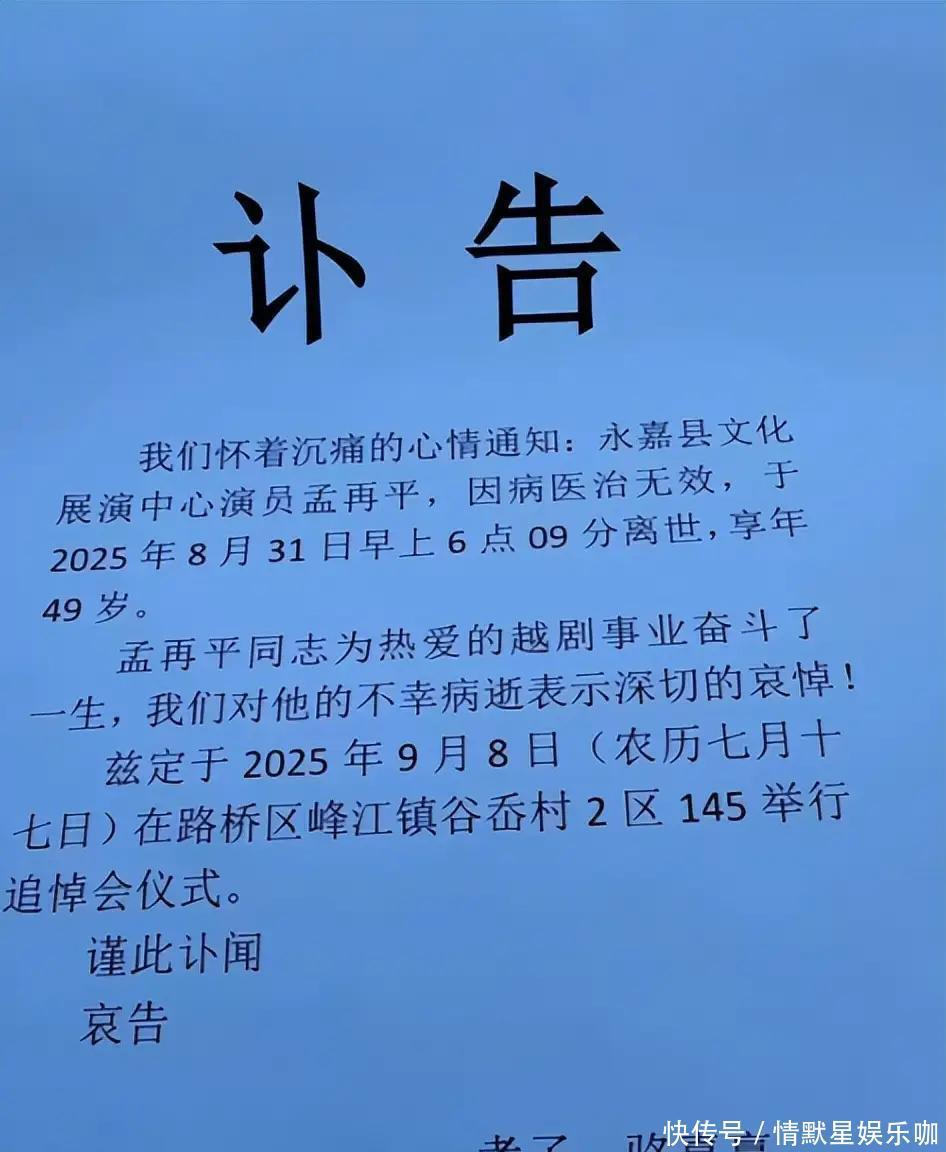 讣告
我们怀着沉痛的心情通知：永嘉县文化
展演中心演员孟再平，因病医治无效，于
2025年8月31日早上6点09分离世，享年
49岁。
孟再平同志为热爱的越剧事业奋斗了
一生，我们对他的不幸病逝表示深切的哀悼！
兹定于2025年9月8日（农历七月十
七日）在路桥区峰江镇谷岙村2区145举行
追悼会仪式。
谨此讣闻
哀告
快传号/情默星娱乐咖